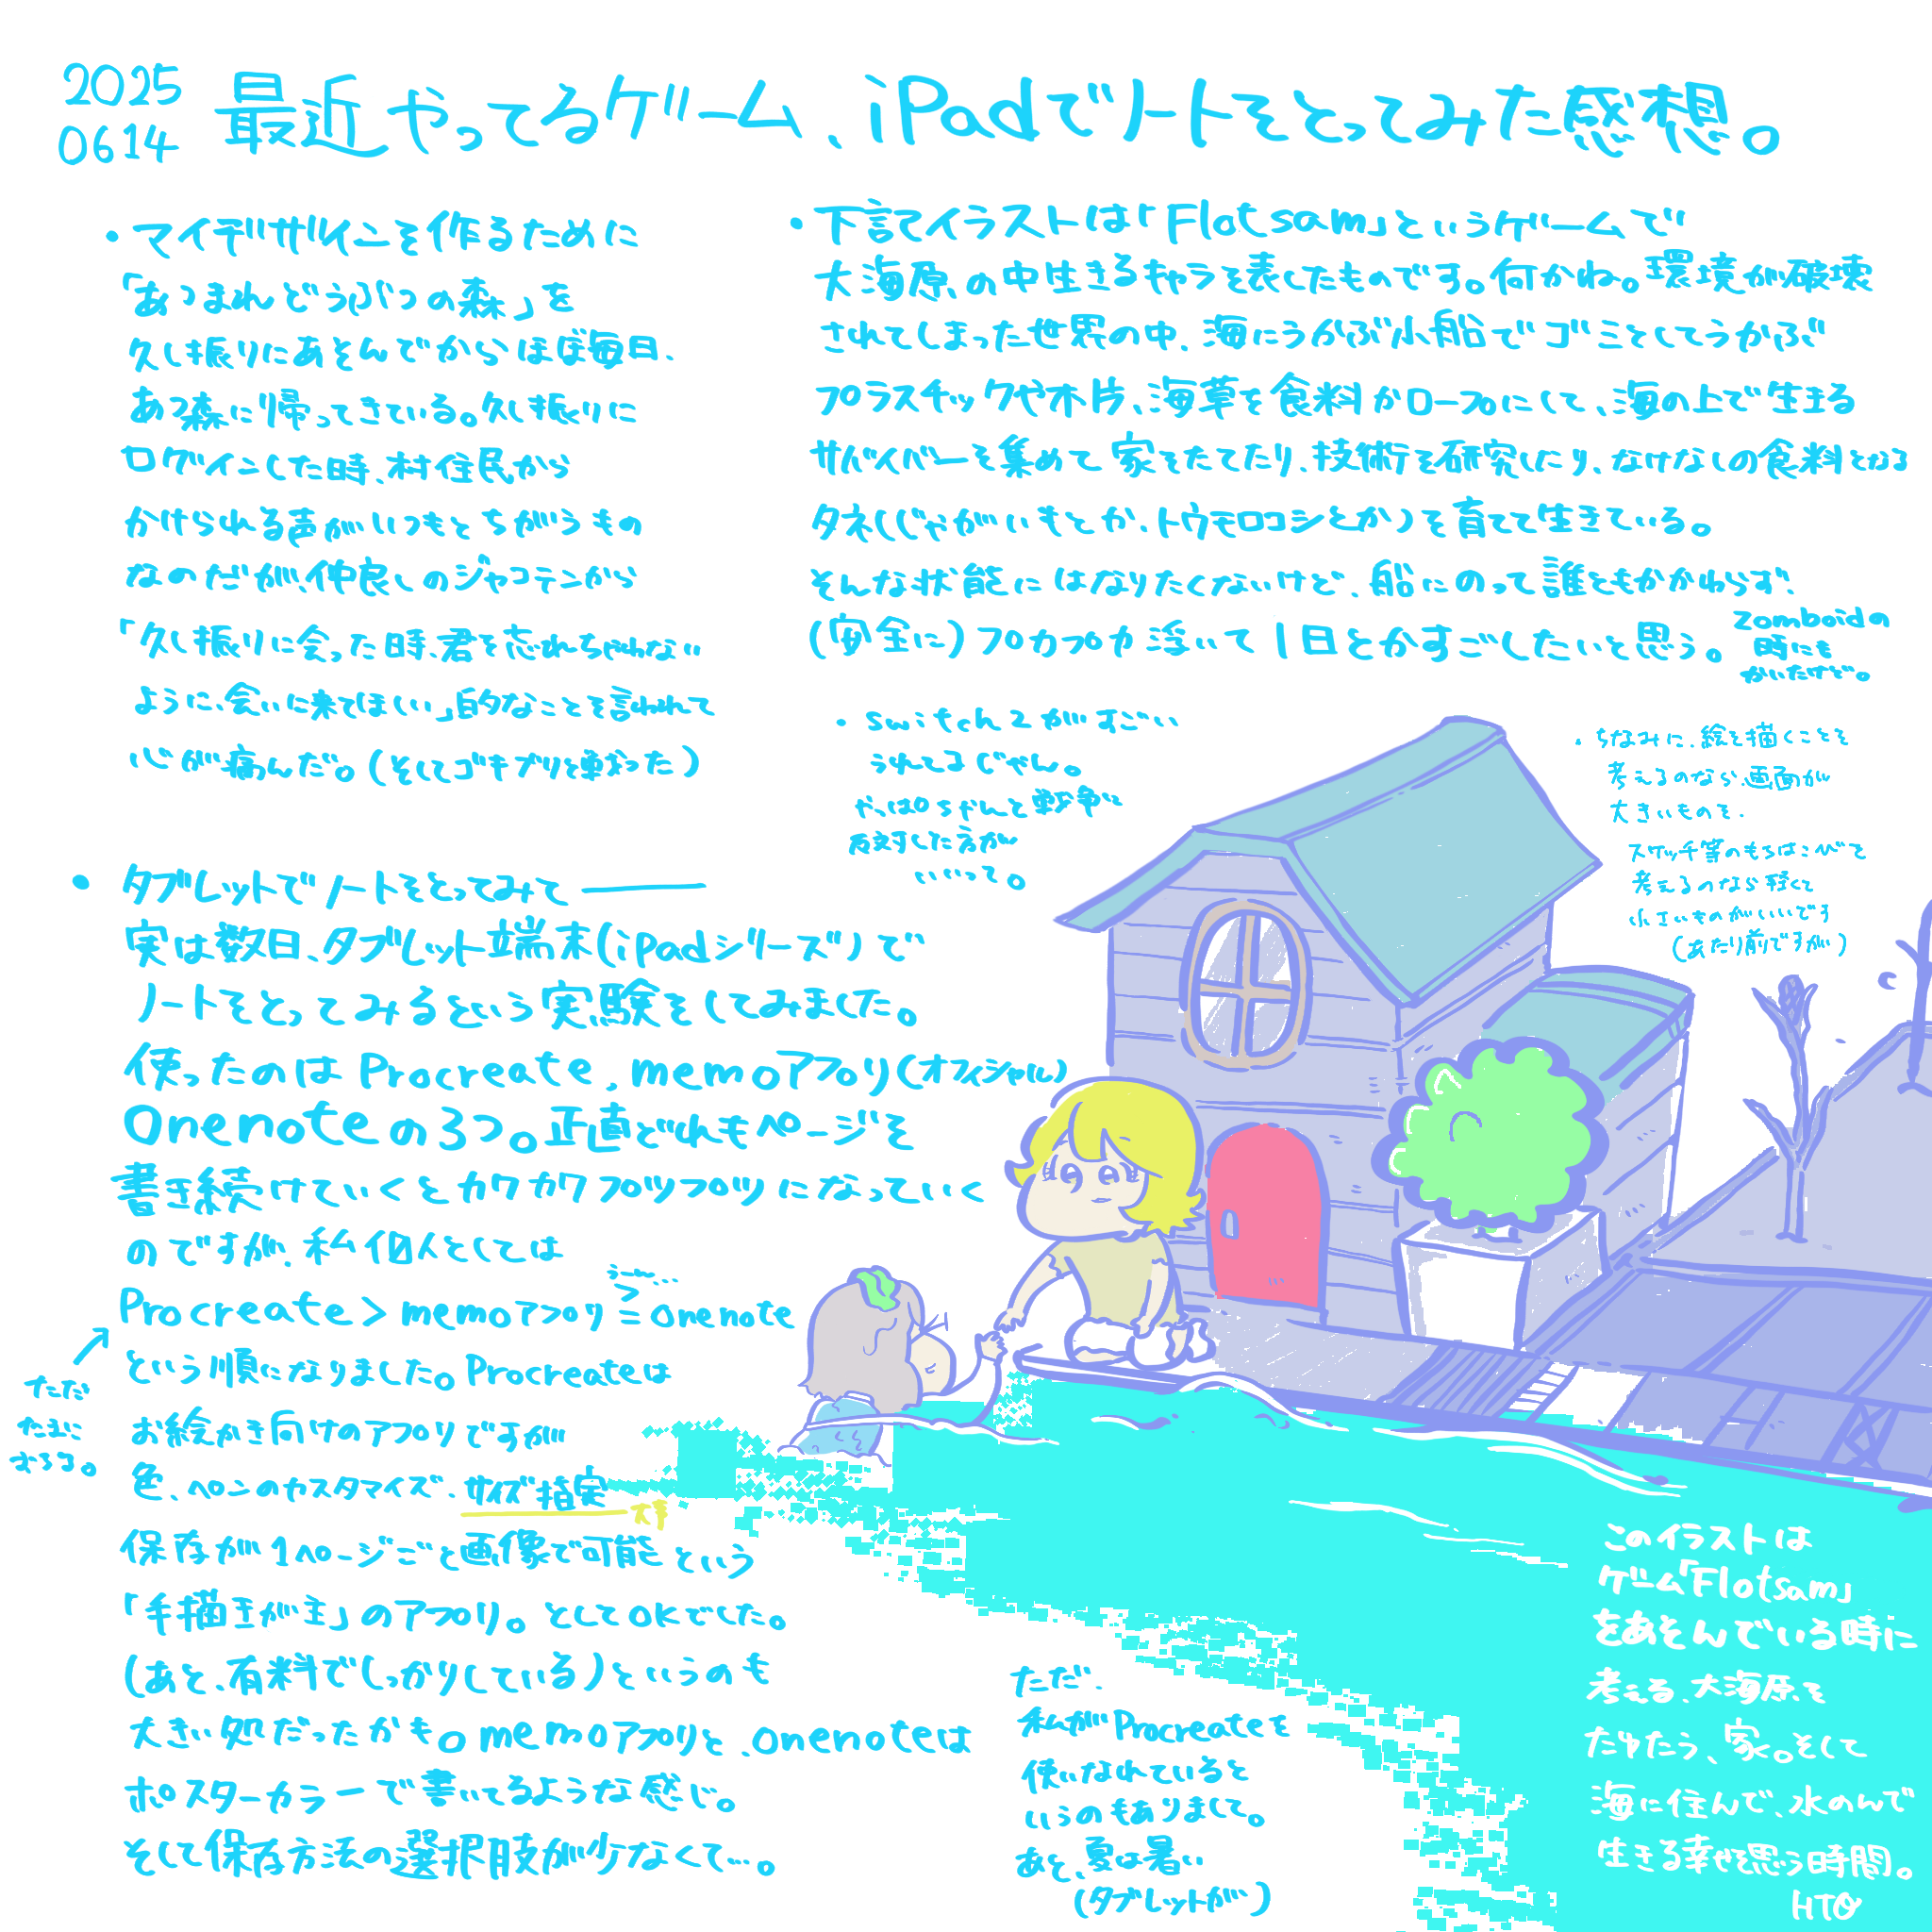 2025
0614
最近やってるゲーム、iPadでノートをとってみた感想。
・マイデザインを作るために
「あつまれどうぶつの森」を
久し振りにあそんでからほぼ毎日、
あつ森に帰ってきている。久し振りに
ログインした時、村住民から
かけられる声がいつもとちがうもの
なのだが、仲良しのジャコテンから
「久し振りに会った時、君を忘れちゃわない
ように、会いに来てほしい」的なことを言われて
心が痛んだ。(そしてゴキブリと戦った)
・タブレットでノートをとってみて――
実は数日、タブレット端末(iPadシリーズ)で
ノートをとってみるという実験をしてみました。
使ったのはProcreate、memoアプリ(オフィシャル)
Onenoteの3つ。正直どれもページを
書き続けていくとカクカクプツプツになっていく
のですが、私個人としては
うーん…
Procreate>memoアプリ≧onenote
という順になりました。Procreateは
ただ
たまに
おちる。
お絵かき向けのアプリですが
色、ペンのカスタマイズ、サイズ指定
大事
保存が1ページごと画像で可能という
「手描きが主」のアプリ。としてOKでした。
(あと、有料でしっかりしている)というのも
大きい処だったかも。memoアプリと、onenoteは
ポスターカラーで書いてるような感じ。
そして保存方法の選択肢が少なくて…。
・下記でイラストは「Flotsam」というゲームで
大海原の中生きるキャラを表したものです。何かね。環境が破壊
されてしまった世界の中、海にうかぶ小船でゴミとしてうかぶ
プラスチックや木片、海草を食料かロープにして、海の上で生きる
サバイバーを集めて家をたてたり、技術を研究したり、なけなしの食料となる
タネ(じゃがいもとか、トウモロコシとか)を育てて生きている。
そんな状態にはなりたくないけど、船にのって誰ともかかわらず、
(安全に)プカプカ浮いて1日とかすごしたいと思う。
zomboidの
時にも
かいたけど。
・switch2がすごい
うれてるじゃん。
やっぱちゃんと戦争に
反対した方が
いいって。
・ちなみに、絵を描くことを
考えるのなら、画面が
大きいものを、
スケッチ等のもちはこびを
考えるのなら軽くて
小さいものがいいです
(あたり前ですが)
ただ、
私がProcreateを
使いなれていると
いうのもありまして。
あと、夏は暑い
(タブレットが)
このイラストは
ゲーム「Flotsam」
をあそんでいる時に
考える、大海原を
ただよう、家。そして
海に住んで、水のんで
生きる幸せを思う時間。
HTO